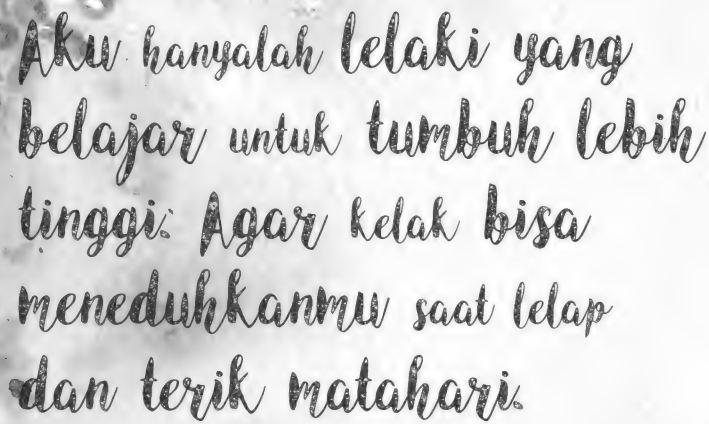 Aku hanyalah lelaki yang
belajar untuk tumbuh lebih
tinggi: Agar kelak bisa
meneduhkanmu saat lelap
dan terik matahari.